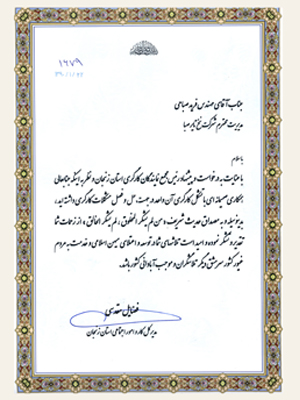 ۱۶۷۹
جناب آقای مهندس فرید صباحی
مدیریت محترم شرکت نخ تایر صبا
با سلام
با عنایت به درخواست و پیشنهاد رئیس مجمع نمایندگان کارگری استان زنجان و نظر به اینکه جنابعالی
همکاری صمیمانه ای با تشکل کارگری آن واحد در جهت حل و فصل مشکلات کارگری داشته اید،
بدینوسیله و به مصداق حدیث شریف «من لم یشکر المخلوق، لم یشکر الخالق» از زحمات شما
تقدیر و تشکر نموده و امید است تلاشهای شما در توسعه و اعتلای میهن اسلامی و خدمت به مردم
غیور کشور سرمشق دیگر تلاشگران و موجب آبادانی کشور باشد.
مدیرکل کار و امور اجتماعی استان زنجان